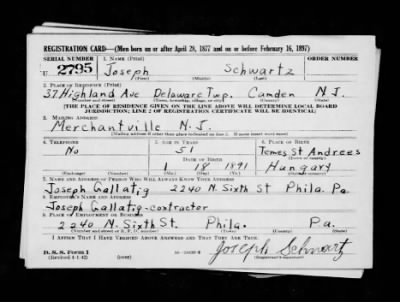 REGISTRATION CARD—(Men born on or after April 28, 1877 and on or before February 16, 1897)
SERIAL NUMBER 1. NAME (Print) ORDER NUMBER
U 2795 Joseph Schwartz
(First) (Middle) (Last)
2. PLACE OF RESIDENCE (Print)
37 Highland Ave Delaware Twp. Camden N. J.
(Number and street) (Town, township, village, or city) (County) (State)
[THE PLACE OF RESIDENCE GIVEN ON THE LINE ABOVE WILL DETERMINE LOCAL BOARD
JURISDICTION; LINE 2 OF REGISTRATION CERTIFICATE WILL BE IDENTICAL]
3. MAILING ADDRESS
Merchantville N. J.
[Mailing address if other than place indicated on line 2. If same insert word same]
4. TELEPHONE 5. AGE IN YEARS 6. PLACE OF BIRTH
No 51 Temes St Andrees
DATE OF BIRTH
1 18 1891 Hungary
7. NAME AND ADDRESS OF PERSON WHO WILL ALWAYS KNOW YOUR ADDRESS
Joseph Gallatig 2240 N. Sixth St Phila. Pa.
8. EMPLOYER'S NAME AND ADDRESS
Joseph Gallatig-contractor
9. PLACE OF EMPLOYMENT OR BUSINESS
2240 N. Sixth St. Phila. Pa.
(Number and street or R. F. D. number) (Town) (County) (State)
I AFFIRM THAT I HAVE VERIFIED ABOVE ANSWERS AND THAT THEY ARE TRUE.
D. S. S. Form 1
(Revised 4-1-42) (over)
Joseph Schwartz